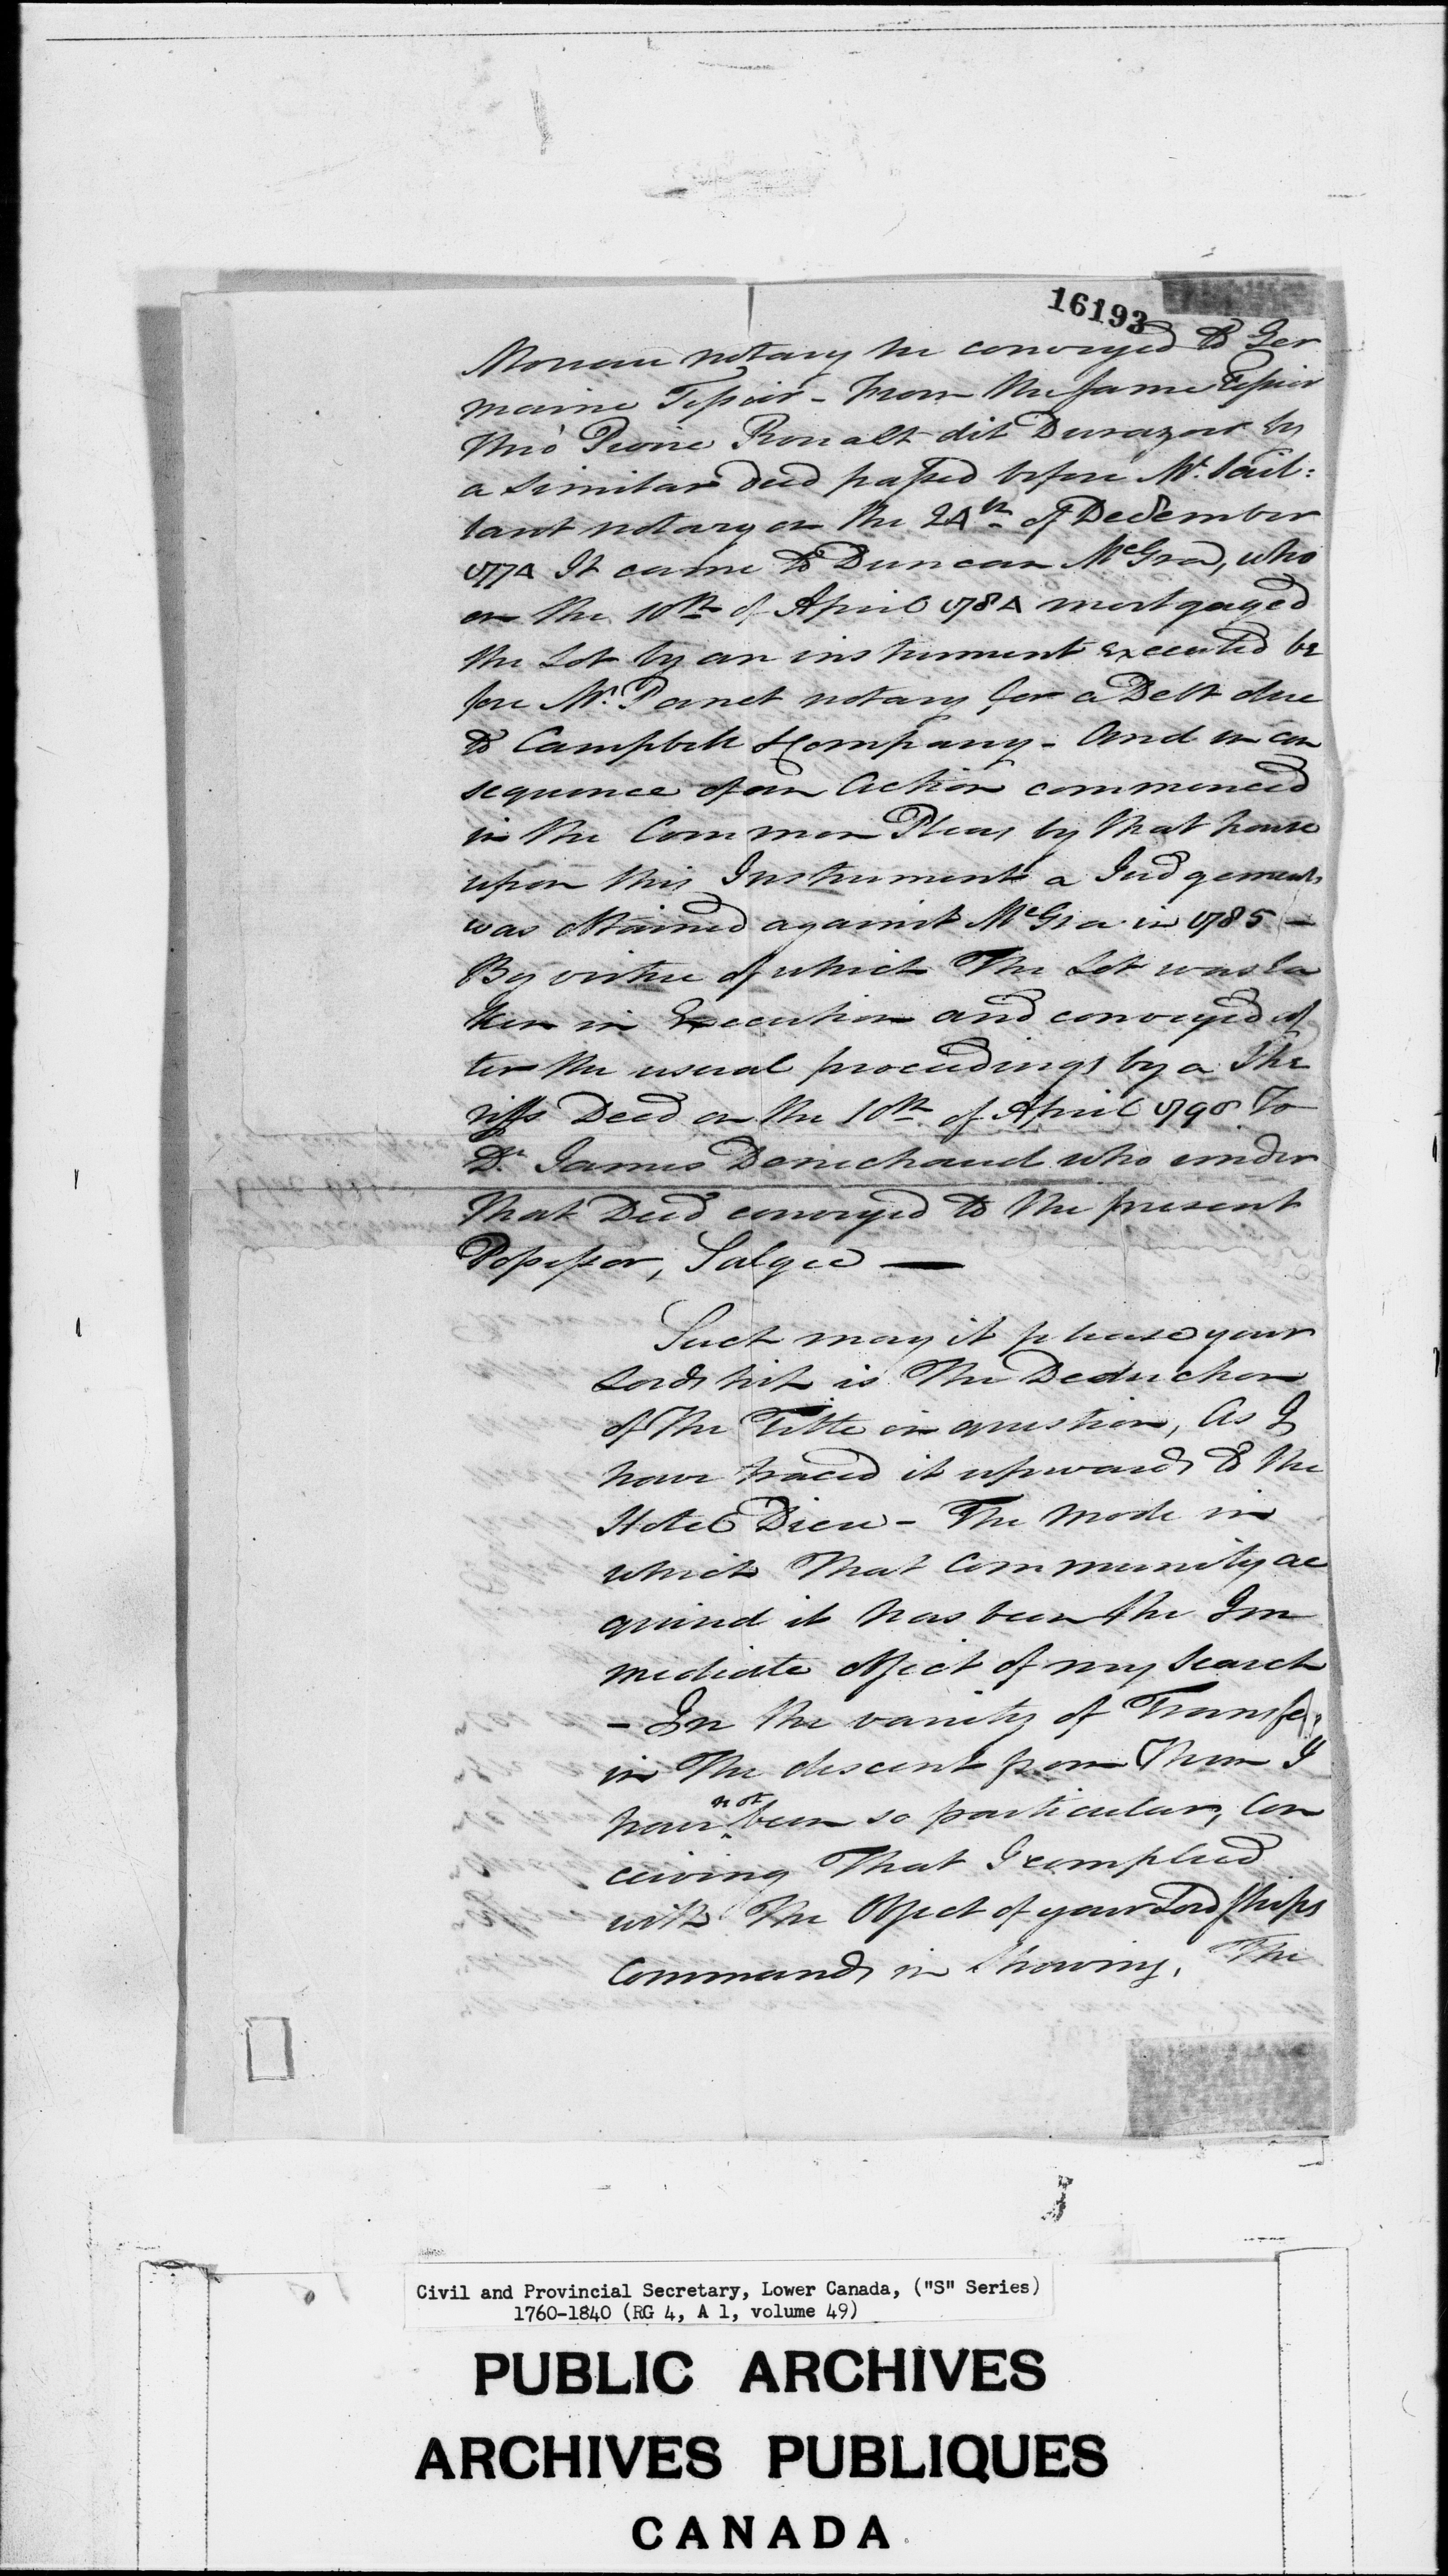 16193
Moreau notary he conveyed to Ger
maine Tessier - From the same Tessier
thro' Pierre Roualt dit Durazoir by
a similar deed passed before Mr. Sail=
lant notary on the 24th of December
1774 It came to Duncan McGra, who
on the 10th of April 1784 mortgaged
the Lot by an instrument executed be
fore Mr. Panet notary for a Debt due
to Campbell & Company - And in con
sequence of an Action commenced
in the Common Pleas by that house
upon this Instrument a Judgement
was obtained against McGra in 1785 -
By virtue of which The Lot was ta
ken in Execution and conveyed af
ter the usual proceedings by a She
riffs Deed on the 10th of April 1798 To
Dr. James Denechaud who under
that Deed conveyed to the present
Possessor, Salgee —
Such may it please your
Lordship is the Deduction
of the Title in question, As I
have traced it upwards to the
Hotel Dieu - The Mode in
which That Community ac
quired it has been the Im
mediate object of my Search
- In the variety of Transfers
in The descent from Them I
have not been so particular, Con
ceiving That I complied
with the Object of your Lordships
Commands in Showing, The
Civil and Provincial Secretary, Lower Canada, ("S" Series)
1760-1840 (RG 4, A 1, volume 49)
PUBLIC ARCHIVES
ARCHIVES PUBLIQUES
CANADA